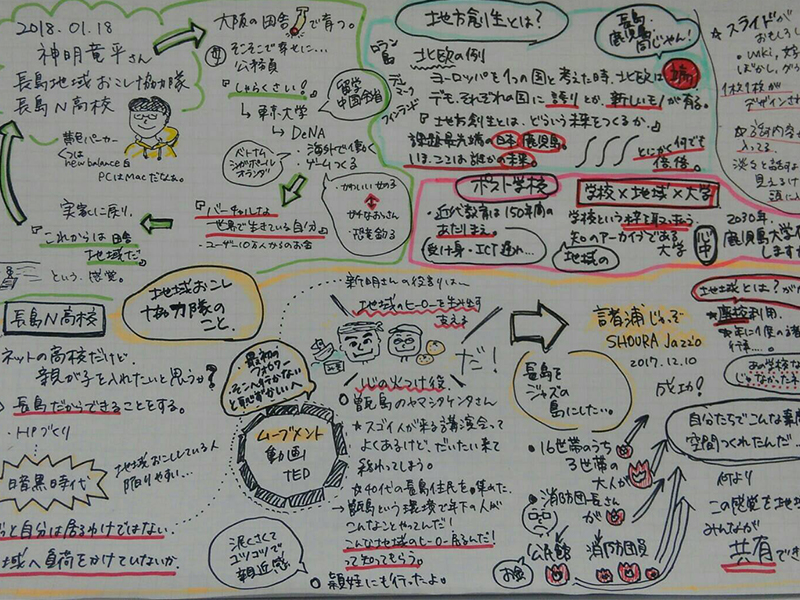 2018.01.18
神明竜平さん
長島地域おこし協力隊
長島N高校
黄色パーカー
くつは
new balance &
PCはMacだなぁ。
大阪の田舎で育つ。
そこそこで幸せに…
公務員
『しゃらくさい!』
留学
中国舎
↳東京大学
↳DeNA
ベトナム
シンガポール
オランダ
・海外で働く
・ゲームつくる
『バーチャルな
世界で生きている自分』
・ユーザー10万人からのお金
・かわいい女の子
サキなおっさん
・恐竜釣る
実家に戻り、
『これからは田舎
地域だ。』
という感覚。
地方創生とは?
長島
鹿児島
同じゃん!
北欧の例
デンマーク
フィンランド
ヨーロッパを1つの国と考えた時、北欧は端
デモ、それぞれの国に誇りとか、新しいモノが有る。
『地方創生とは、どういう未来をつくるか。』
課題最先端の日本、鹿児島。
しほ、ここは誰かの未来。
とにかく何でも
ポスト学校
学校×地域×大学
・近代教育は150年間の
あたりまえ。
受け身・ICT遅れ…
学校という枠を取っ払う。
知のアーカイブである
大学
地域の
心中
2030年
鹿児島大学
☆スライドが
おもしろ
・wiki、
ぼかし、グラ
1枚1枚が
デザインさ
☆話す内容
入ってる
淡々と話すよ
見えるけ
長島N高校
ネットの高校だけど
親が子を入れたいと思うか?
長島だからできることをする。
・HPづくり
暗黒時代
地域おこししている人
陥りやすい…
っと自分は居るわけではない
地域へ負荷をかけていないか。
地域おこし
協力隊の
こと。
新明さんの役割りは…
地域のヒーローを生み出す
支える
だ!
最初の
フォロワー
そこへ行かない
と恥ずかしいへ
ムーブメント
動画
TED
泥くさくて
コツコツで
親近感
心の火つけ役
○甑島のヤマシタケンタさん
☆スゴイ人が来る講演会って
よくあるけど、だいたい来て
終わってしまう。
☆40代の長島住民を集めた。
→甑島という環境で年下の人が
こんなことやってんだ!
こんな地域のヒーロー居るんだ!
って知ってもらう。
○頴娃にも行ったよ。
諸浦じゃっぞ
SHOURA Jazz'o
2017.12.10
長島を
ジャズの
島にしたい。
成功!
・16世帯のうち
3世帯の
大人が
・消防団長さん
が
公民館
消防団員
お父
地域とは?が
廃校利用。
・年に1度の
行事…。
あの学校な
じゃなかった
自分たちでこんな素
空間つくれたんだ…
何より
この感覚を地
みんなが
共有でき